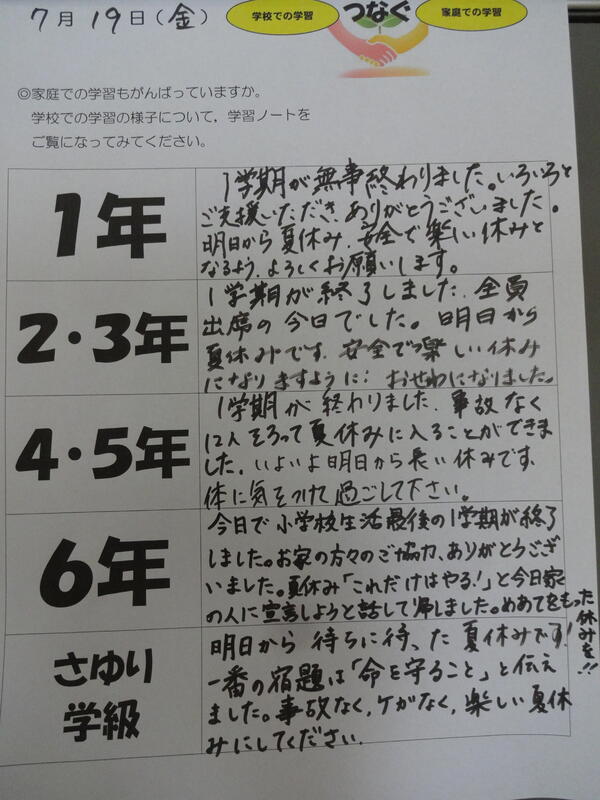 7月19日(金)
学校での学習
つなぐ
家庭での学習
◎家庭での学習もがんばっていますか。
学校での学習の様子について,学習ノートを
ご覧になってみてください。
1年
1学期が無事終わりました。いろいろと
ご支援いただき,ありがとうございました。
明日から夏休み.安全で楽しい休みと
なるよう.よろしくお願いします。
2・3年
1学期が終了しました.全員
出席の今日でした。明日から
夏休みです.安全で楽しい休み
になりますように… おせわになりました。
4・5年
1学期が終わりました.事故なく
12人そろって夏休みに入ることができま
した。いよいよ明日から長い休みです.
体に気をつけて過ごして下さい。
6年
今日で小学校生活最後の1学期が終了
しました。お家の方々のご協力、ありがとうござ
いました。夏休み「これだけはやる!」と今日家
の人に宣言しようと話して帰しました。めあてをもった
休みを!!
さゆり
学級
明日から待ちに待った夏休みです!
一番の宿題は「命を守ること」と伝え
ました。事故なく,ケガなく,楽しい夏休
みにしてください.